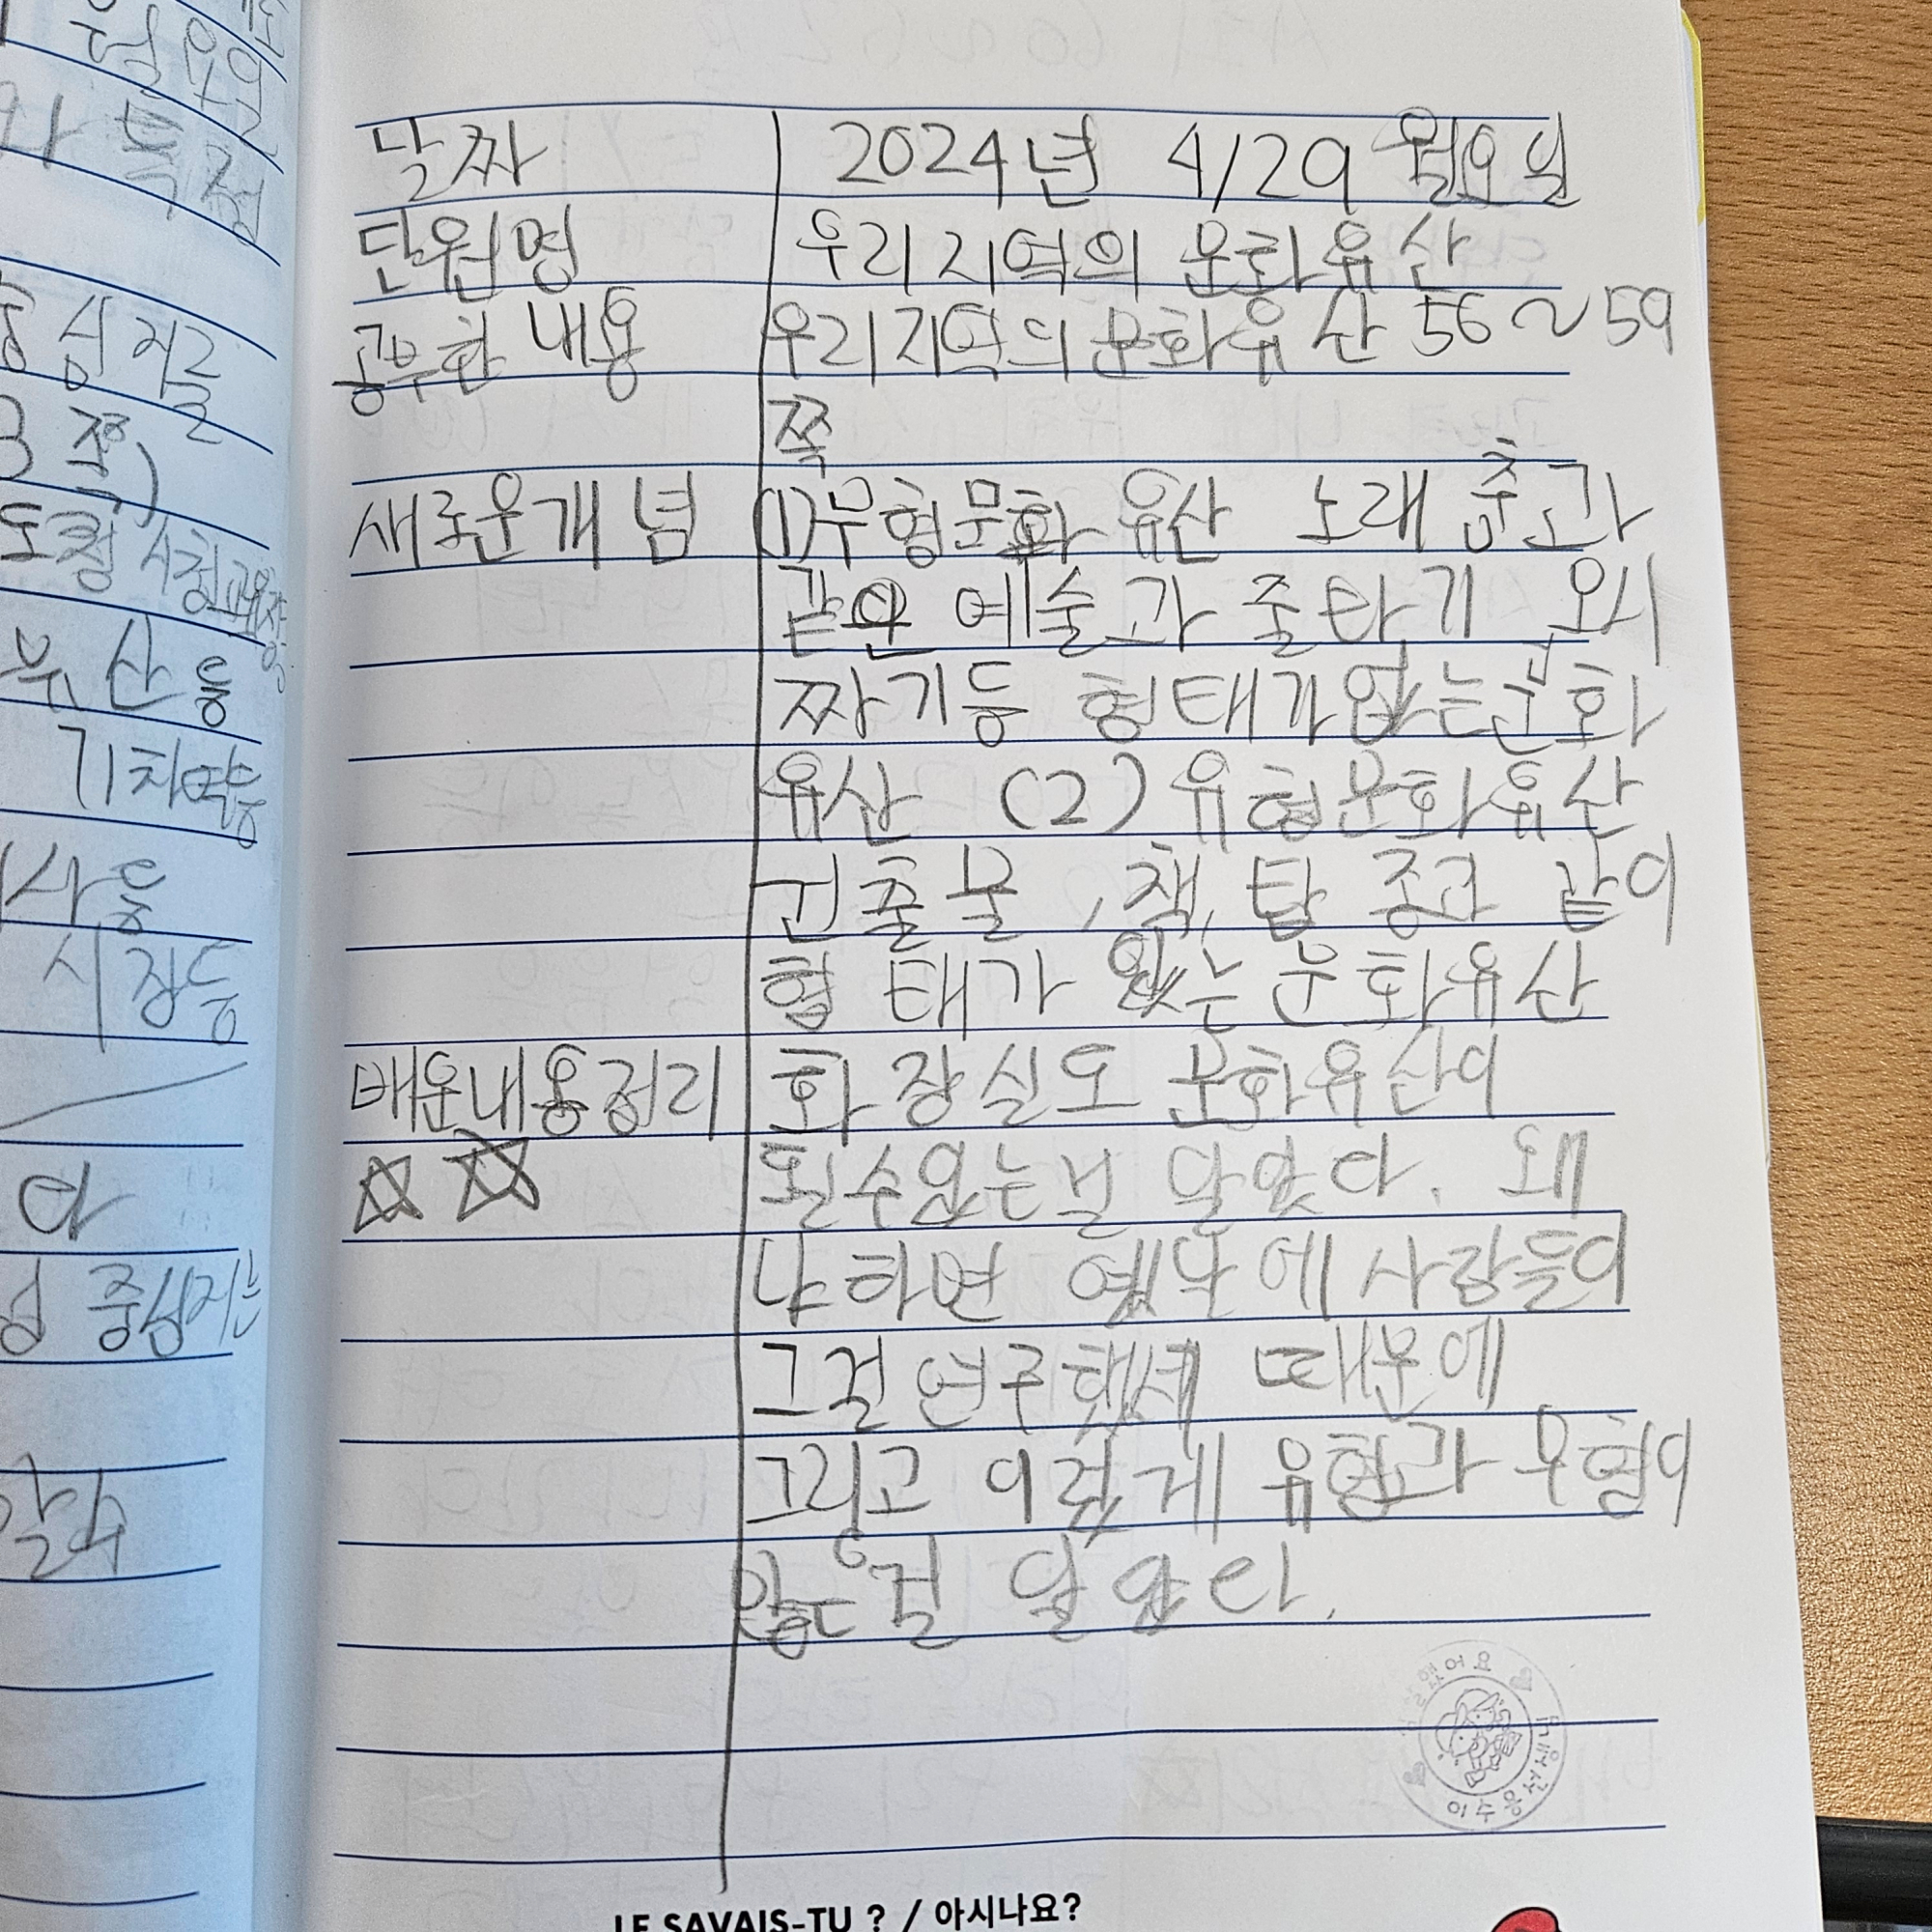 날짜 2024년 4/29 월요일
단원명 우리지역의 문화유산
공부한 내용 우리지역의문화유산 56~59
쪽
새로운개념 (1)무형문화유산 노래 춤과
같은 예술과 줄타기
짜기등 형태가없는문화
유산 (2)유형문화유산
건출물, 책, 탑 종과 같이
형태가 있는문화유산
배운내용정리 화장실도 문화유산이
될수있는널 알았다. 왜
냐하면 옛날에사람들이
그걸 연구했
때문에
그리고 이렇게 유형과 무형이
있는걸 알았다.
중심지를
도청 시청
부산등
시장등
다
중심지는
LE SAVAIS-TU ? / 아시나요?